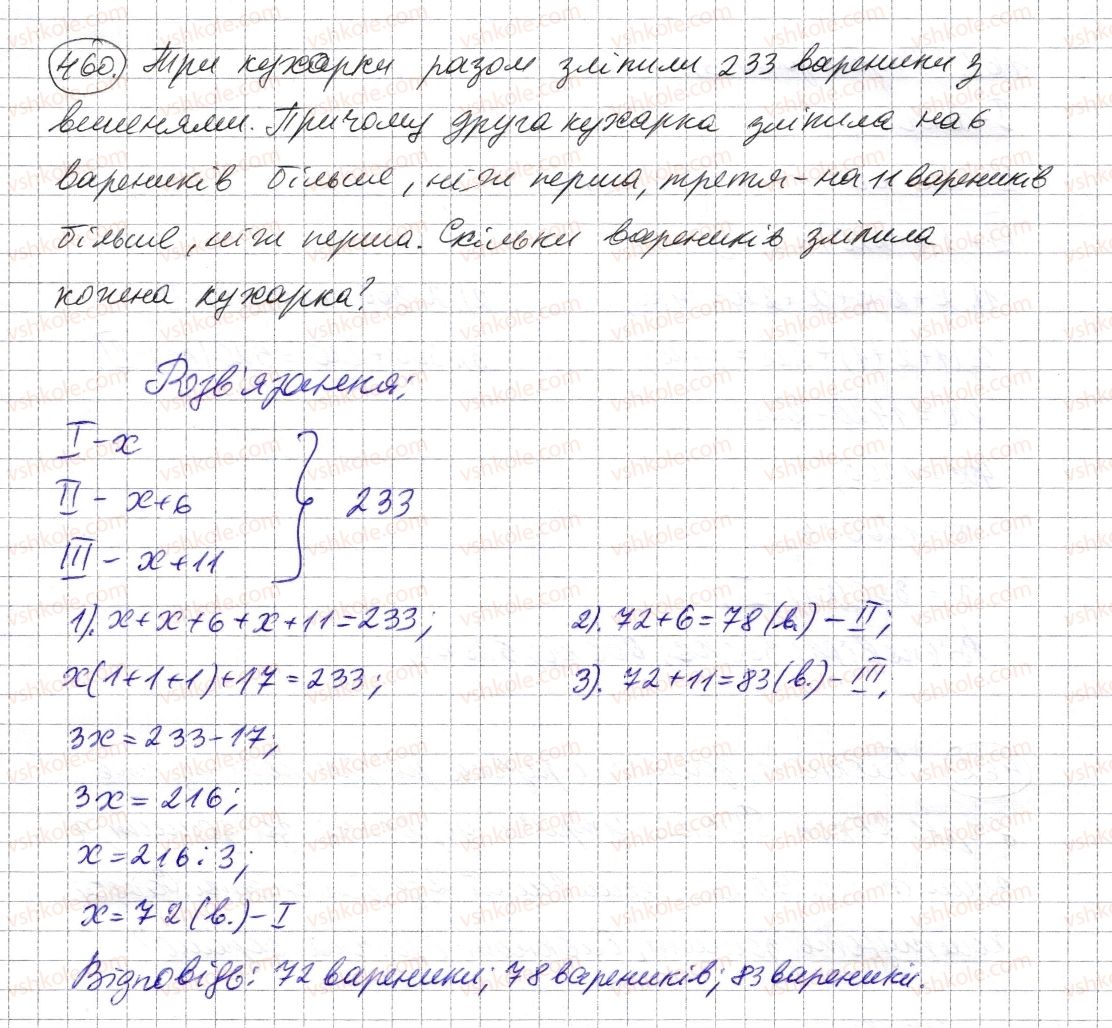 460. Три кухарки разом зліпили 233 вареники з
вишнями. Причому друга кухарка зліпила на 6
вареників більше, ніж перша, третя - на 11 вареників
більше, ніж перша. Скільки вареників зліпила
кожна кухарка?
Розв'язання:
I - x
II - x+6
III - x+11
233
1). x+x+6+x+11=233;
x(1+1+1)+17=233;
3x=233-17;
3x=216;
x=216:3;
x=72(в.)-I
2). 72+6=78(в.)-II;
3). 72+11=83(в.)-III.
Відповідь: 72 вареники; 78 вареників; 83 вареники.